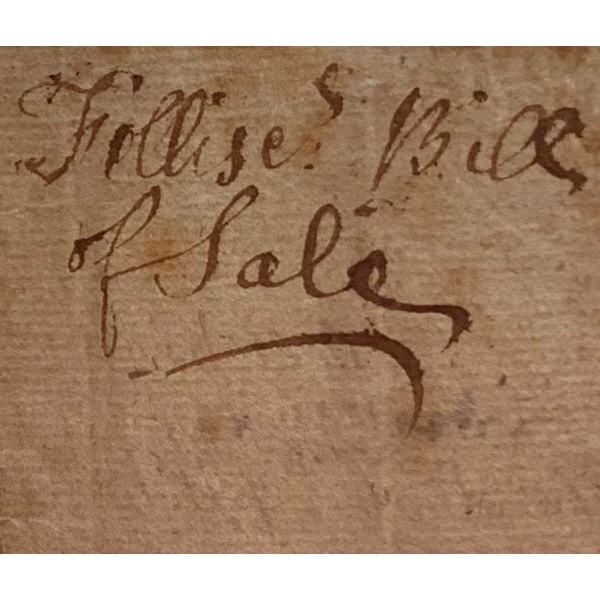 Fillise's Bill
of Sale